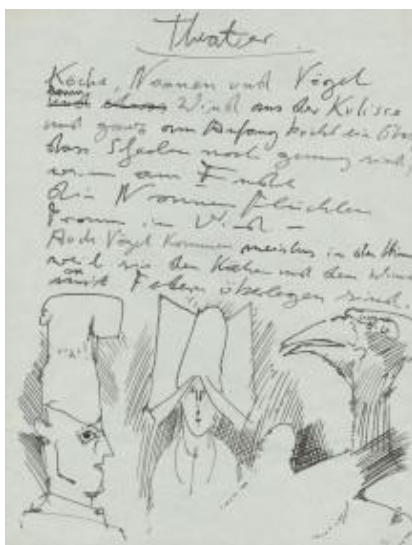 Theater.
Köche, Nonnen und Vögel
Wind aus der Kulisse
und ganz am Anfang
dass noch genug sind,
wenn am Ende
die Nonnen flüchten
fromm im Wind –
Auch Vögel kommen meistens in den
weil sie den Köchen und dem Wind
an Federn überlegen sind.